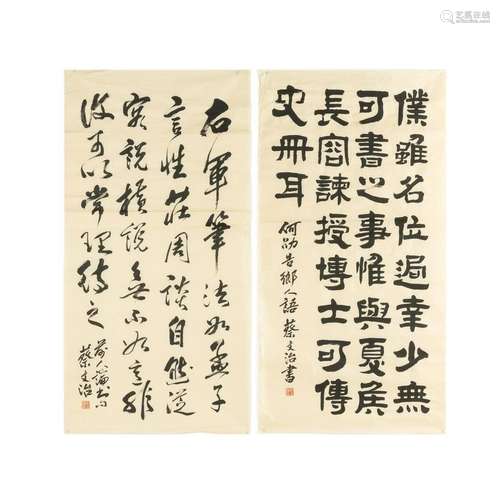 艺狐在线
僕雖名位過幸少無
可書之事惟與夏侯
長容諫授博士可傳
史冊耳
何劭告鄉人語 蔡文治書
右軍筆法如孟子
言性莊周談自然從
容說橫說無不如意非
復可以常理待之
前人論書句
蔡文治